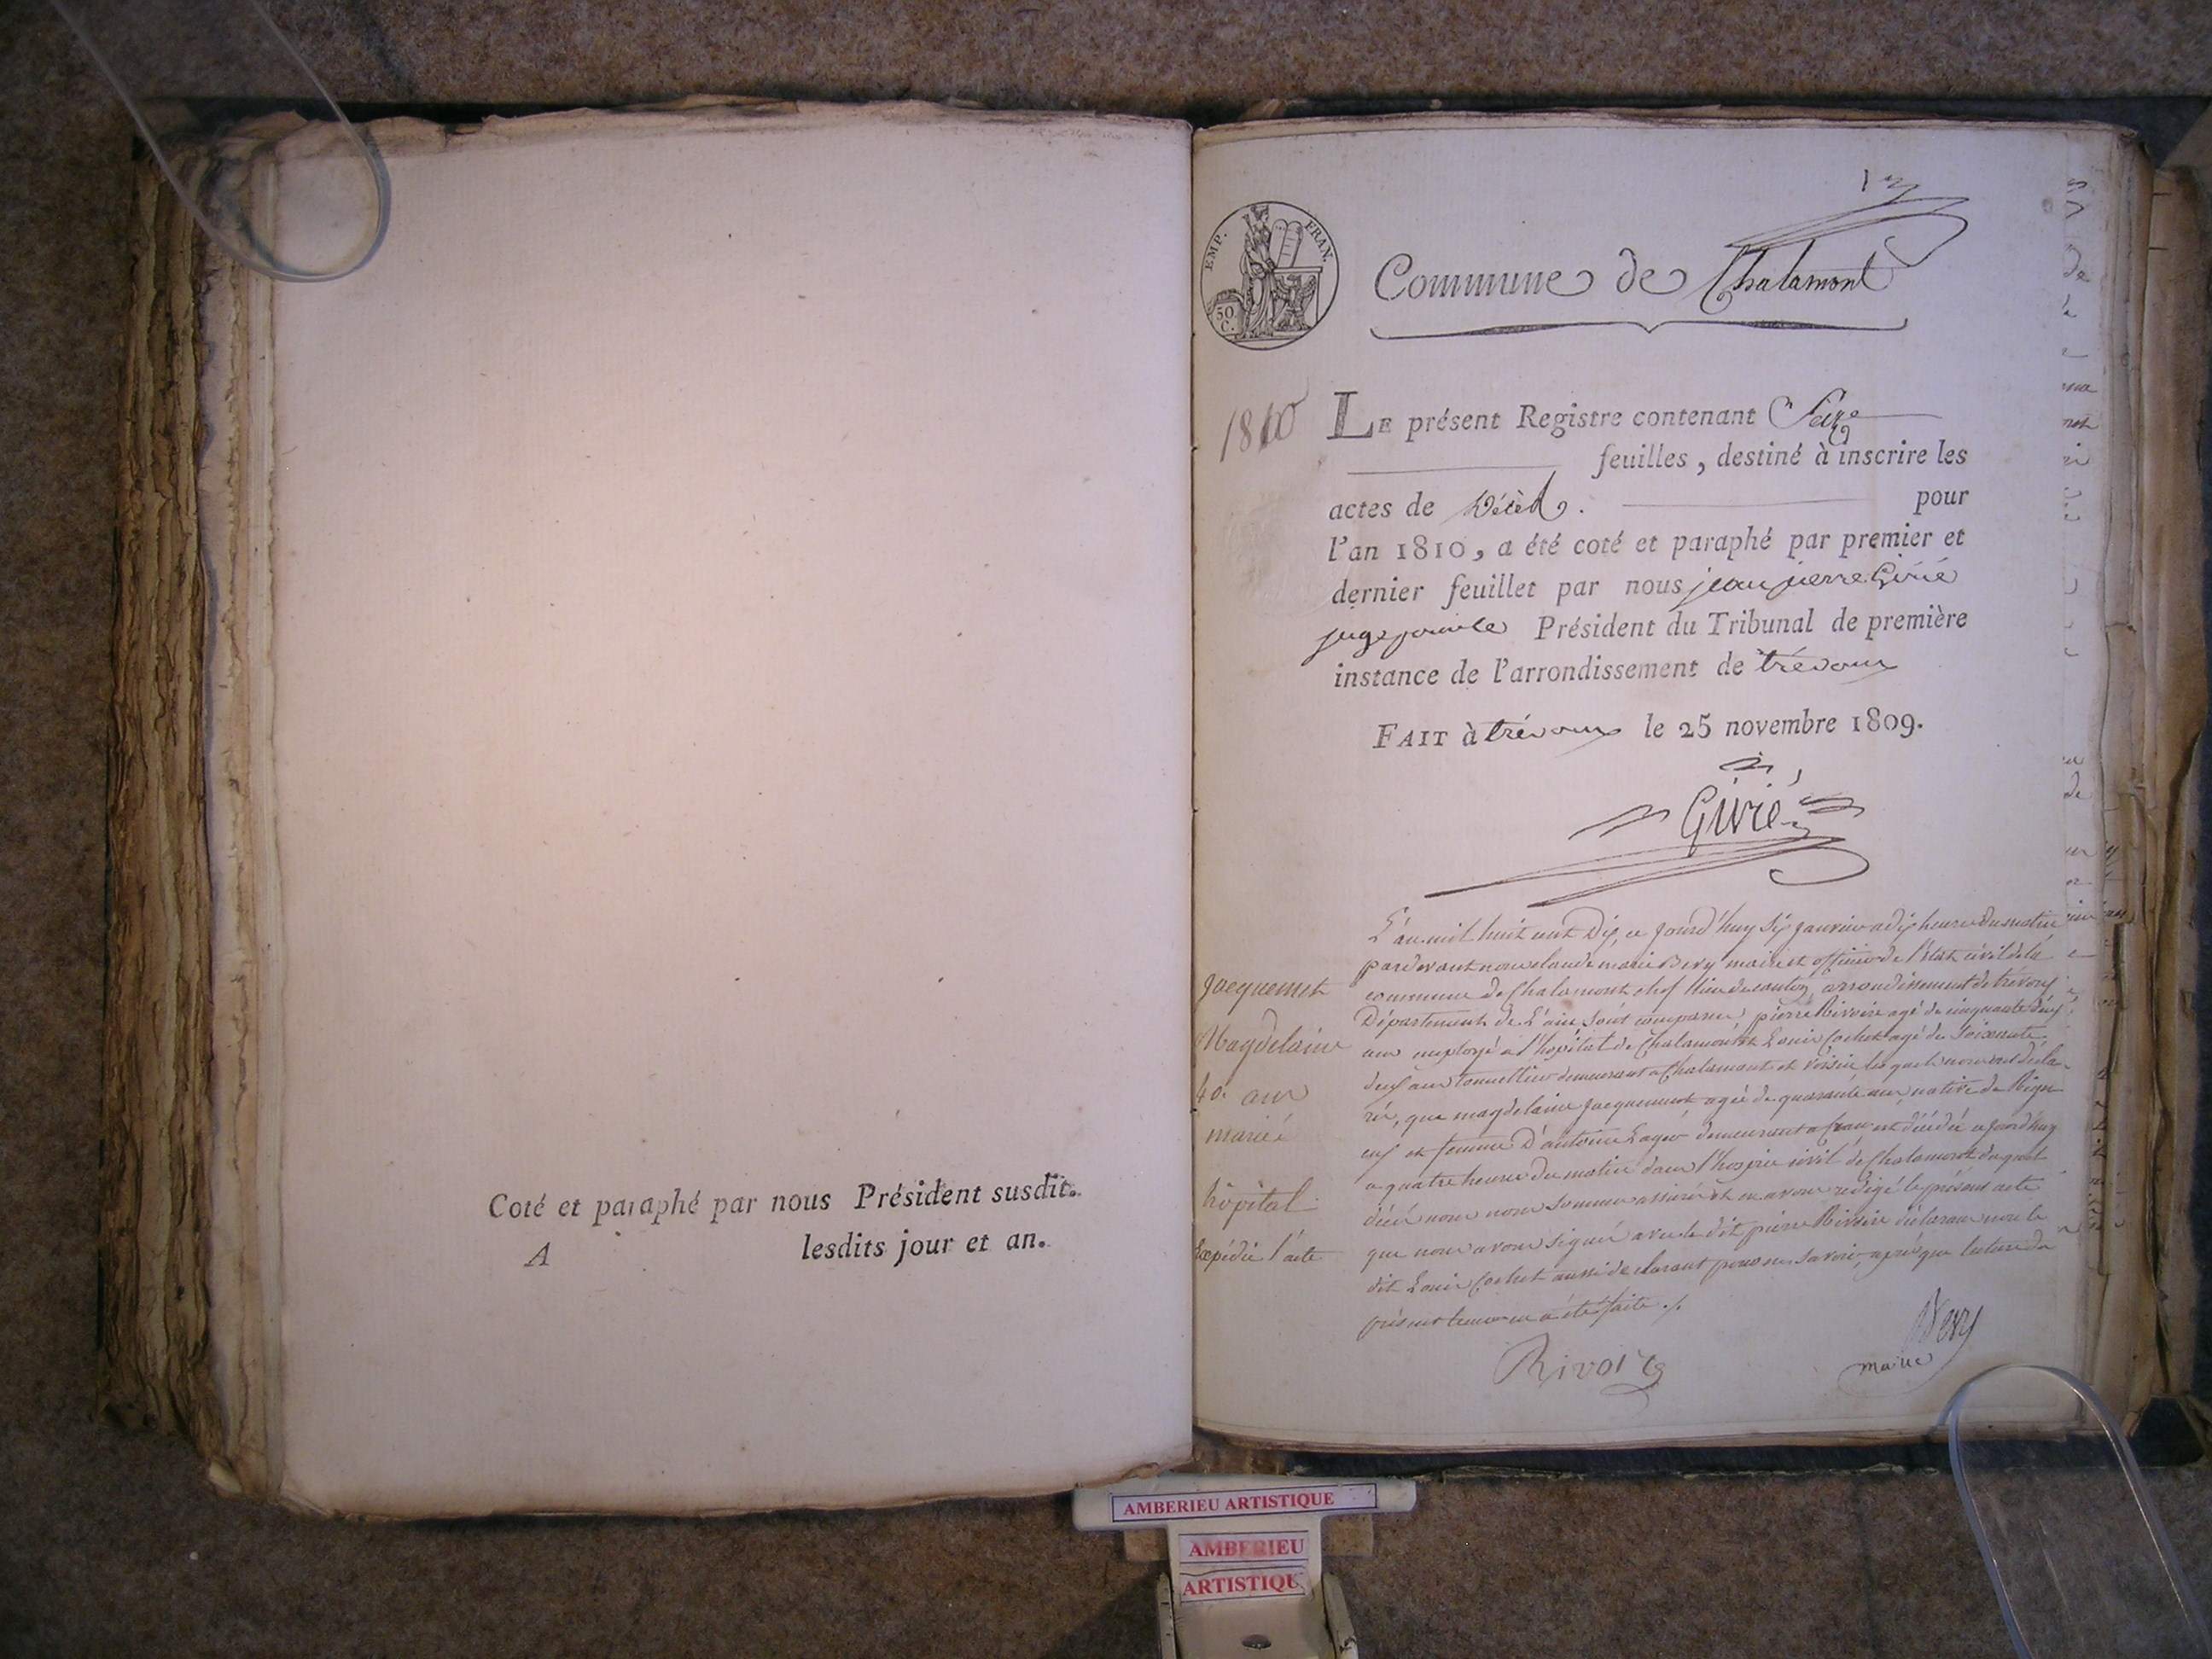 Coté et paraphé par nous Président susdit.
A lesdits jour et an.
EMP. FRAN.
50 C.
Commune de Chalamont
1810
LE présent Registre contenant Seize
feuilles, destiné à inscrire les
actes de Décès. pour
l'an 1810, a été coté et paraphé par premier et
dernier feuillet par nous jean pierre Givié
juge Président du Tribunal de première
instance de l'arrondissement de trévoux
FAIT à trévoux le 25 novembre 1809.
Givié
L'an mil huit cent Dix, ce jourd'huy Six janvier a dix heures du matin
pardevant nous claude marie Bevy maire et officier de l'état civil de la
commune de Chalamont chef lieu de canton, arrondissement de trévoux
Département de L'ain, sont comparus pierre Rivoire agé de cinquante deux
ans employé a l'hopital de Chalamont et Louis Cochet agé de Soixante
deux ans tonnellier demeurant a Chalamont et voisin lesquels nous ont décla-
ré, que magdelaine jacquemet agée de quarante ans, native de Rign
eux et femme D'antoine Layer demeurant a Cran est décédée cejourd'huy
a quatre heures du matin dans l'hospice civil de Chalamont duquel
décès nous nous sommes assurés et en avons rédigé le présent acte
que nous avons signé avec le dit pierre Rivoire déclarant non le
dit Louis Cochet aussi déclarant pour ne savoir, après que lecture du
présent leur en a été faite ./.
jacquemet
Magdelaine
40. ans
mariée
hôpital
Expédié l'acte
Rivoire
Bevy
maire
AMBERIEU ARTISTIQUE
AMBERIEU
ARTISTIQUE